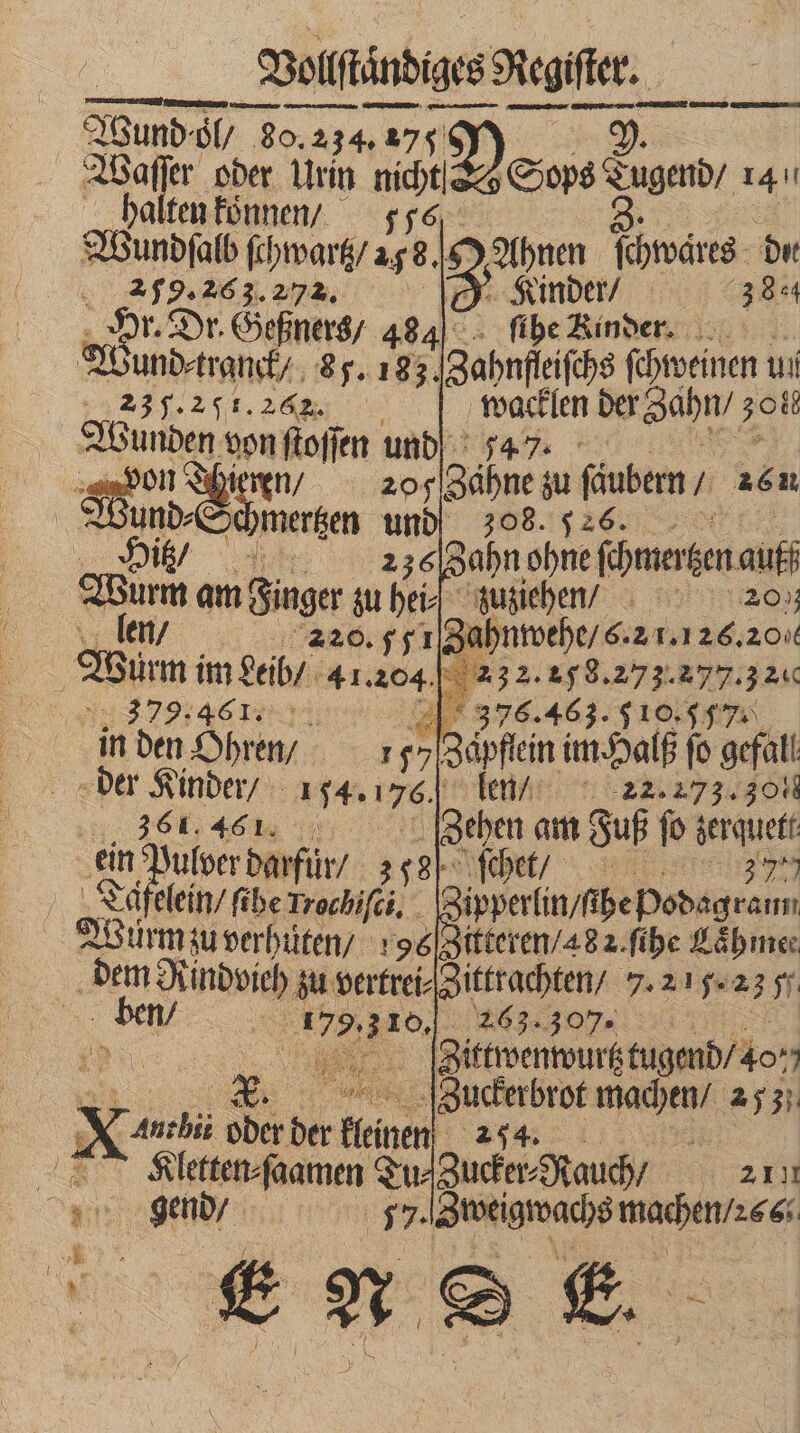 Vollſtåndiges Regiſter.
Wund-ől/ 80. 234. 275
Waſſer oder Urin nicht
halten kőnnen/ 556
Wundſalb ſchwartz/ 258.
259. 263. 272.
Hr. Dr. Geßners/ 484
Wund-tranck/ 85. 183.
235. 251. 262.
Wunden von ſtoſſen und
von Thieren/ 205
Wund-Schmertzen und
Hitz/ 236
Wurm am Finger zu hei-
len/ 220. 551
Würm im Leib/ 41. 204.
379. 461.
in den Ohren/ 157
der Kinder/ 154. 176.
361. 461.
ein Pulver darfür/ 358
Täfelein/ ſihe Trochiſci.
Würm zu verhüten/ 196
dem Rindvieh zu vertrei-
ben/ 179. 310.
X.
XAnthii oder der kleinen
Kletten-ſaamen Tu-
gend/ 57.
Y.
YSops Tugend/ 14
Z.
ZAhnen ſchwåres der
Kinder/ 384
ſihe Kinder.
Zahnfleiſchs ſchweinen un
wacklen der Zähn/ 308
547.
Zåhne zu ſåubern/ 262
308. 526.
Zahn ohne ſchmertzen auß
zuziehen/ 203
Zahnwehe/ 6. 21. 126. 206
232. 258. 273. 277. 320
376. 463. 510. 557.
Zåpflein im Halß ſo gefal
len/ 22. 273. 308
Zehen am Fuß ſo zerquet
ſchet/ 377
Zipperlin/ ſihe Podagram
Zitteren/ 482. ſihe Låhme
Zittrachten/ 7. 215. 235
263. 307.
Zittwenwurtz tugend/ 407
Zuckerbrot machen/ 253
254.
Zucker-Rauch/ 211
Zweigwachs machen/ 266
ENDE.